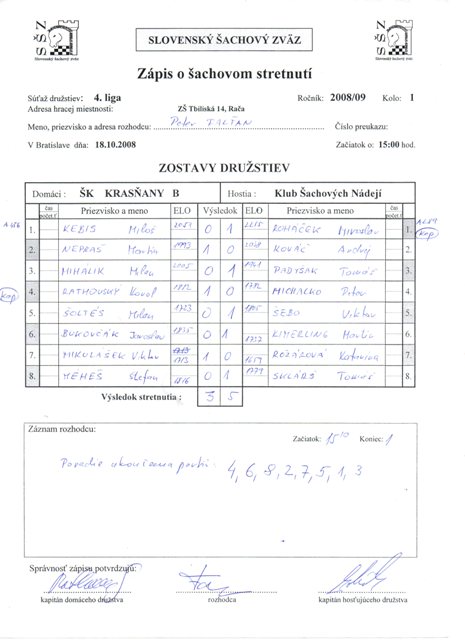 SLOVENSKÝ ŠACHOVÝ ZVÄZ
Zápis o šachovom stretnutí
Súťaž družstiev: 4. liga Ročník: 2008/09 Kolo: 1
Adresa hracej miestnosti: ZŠ Tbiliská 14, Rača
Meno, priezvisko a adresa rozhodcu: Peter Číslo preukazu:
V Bratislave dňa: 18.10.2008 Začiatok o: 15:00 hod.
ZOSTAVY DRUŽSTIEV
Domáci : ŠK KRASŇANY B Hostia : Klub Šachových Nádejí
čas počet.ť Priezvisko a meno ELO Výsledok ELO Priezvisko a meno čas počet.ť
1. KEBIS Miloš 0 1 ROHÁČEK Miroslav 1.
2. NEPRAŠ Martin 1993 1 0 KOVÁČ Andrej 2.
3. MIHALIK Milan 2005 0 1 PADYŠAK Tomáš 3.
kap 4. RATHOUSKÝ Karol 1 0 MICHALKO Peter 4.
kap
5. ŠOLTÉS Milan 0 1 ŠEBO Viktor 5.
6. BUKOVČÁK Jaroslav 1835 0 1 KIMERLING Martin 6.
7. MIKULÁŠEK Viktor 1713 1 0 ROZÁROVÁ Katarína 7.
8. MEHEŠ Štefan 1816 0 1 1779 SKLÁRŠ Tomáš 8.
Výsledok stretnutia : 3 5
Záznam rozhodcu:
Začiatok: 15 10 Koniec:
Poradie ukončenia partií: 4, 6, 8, 2, 7, 5, 1, 3
Správnosť zápisu potvrdzujú:
kapitán domáceho družstva rozhodca kapitán hosťujúceho družstva